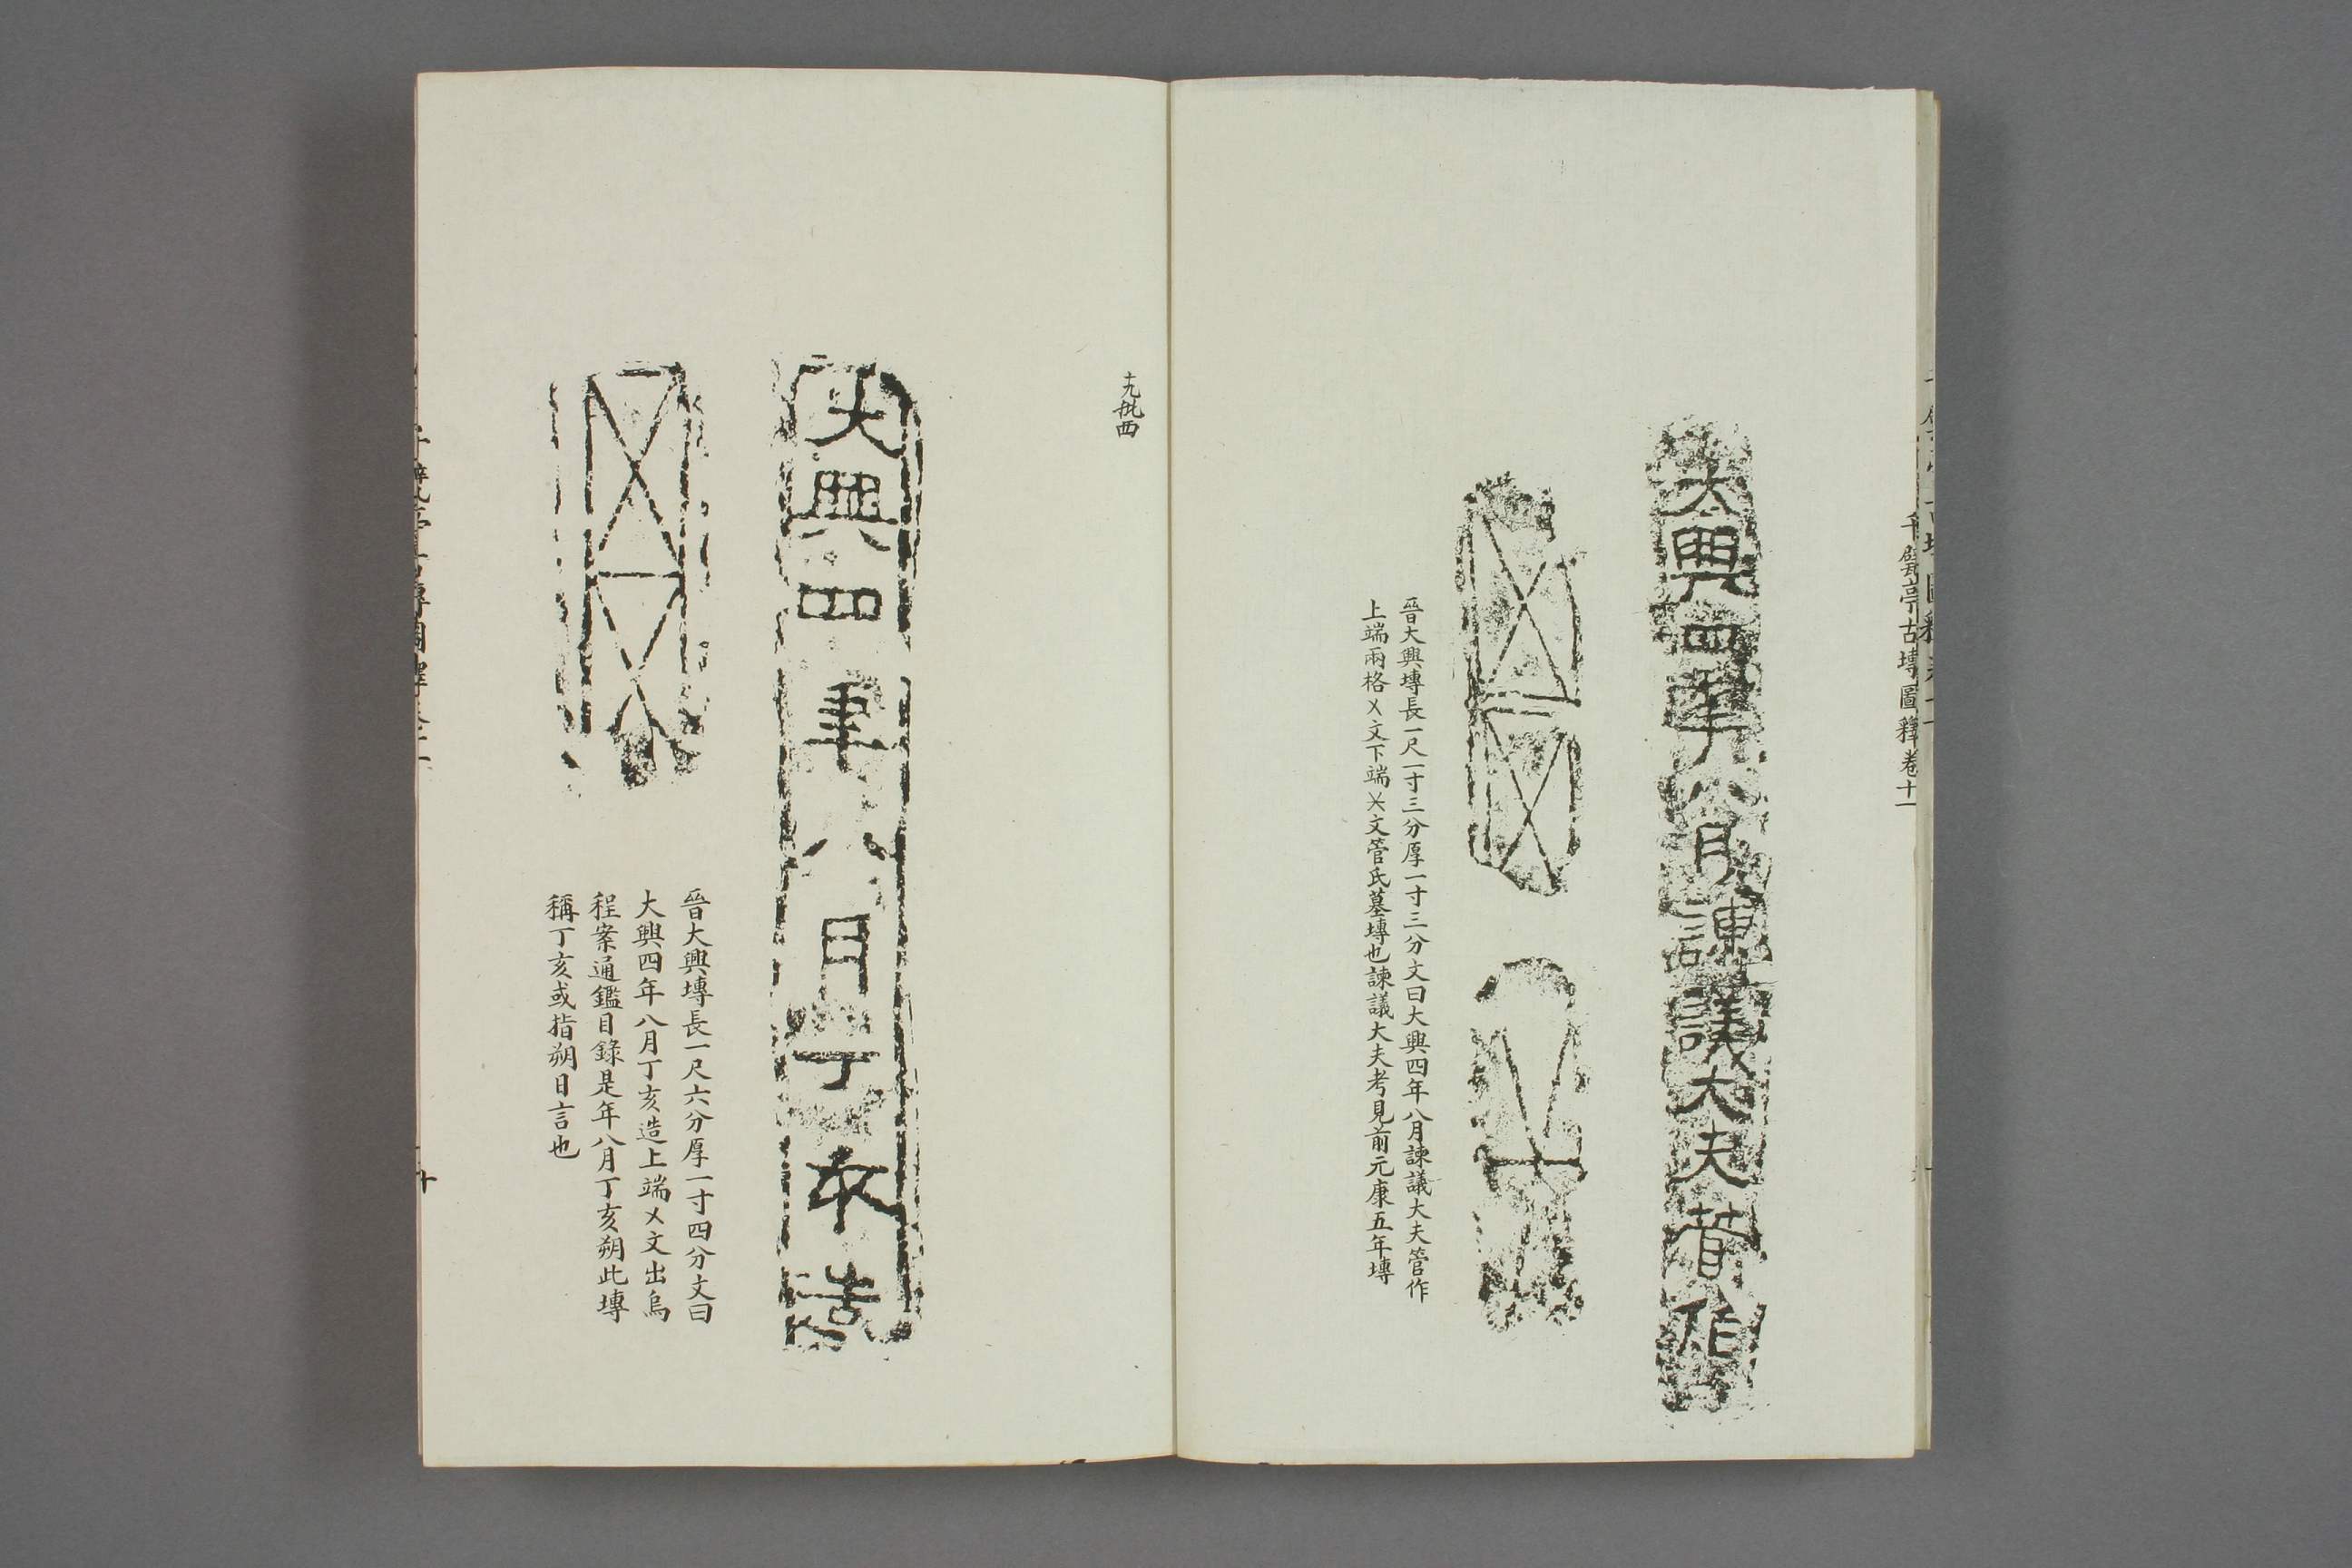 千甓亭古塼圖釋卷十一
大興四年八月諫議大夫管作
晉大興塼長一尺一寸三分厚一寸三分文曰大興四年八月諫議大夫管作
上端兩格㐅文下端文管氏墓塼也諫議大夫考見前元康五年塼
大興四年八月丁亥造
晉大興塼長一尺六分厚一寸四分文曰
大興四年八月丁亥造上端㐅文出烏
程案通鑑目錄是年八月丁亥朔此塼
稱丁亥或指朔日言也
十